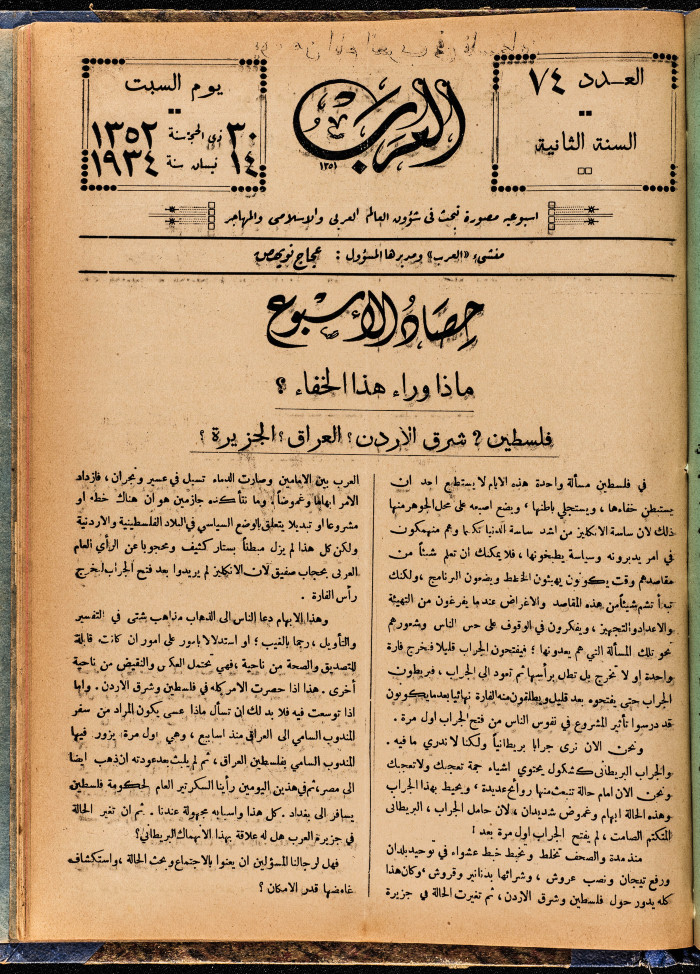 العدد ٧٤
السنة الثانية
العرب
١٣٥١
يوم السبت
٣٠ ذي الحجة سنة ١٣٥٢
١٤ نيسان سنة ١٩٣٤
اسبوعية مصورة تبحث في شؤون العالم العربي والاسلامي والمهاجر
منشىء «العرب» ومديرها المسؤول : عجاج نويهض
حصاد الأسبوع
ماذا وراء هذا الخفاء ؟
فلسطين ؟ شرق الاردن ؟ العراق ؟ الجزيرة ؟
في فلسطين مسألة واحدة هذه الايام لا يستطيع احد ان
يستبطن خفاءها ، ويستجلي باطنها ، ويضع اصبعه على محل الجوهر منها
ذلك لان ساسة الانكليز من اشد ساسة الدنيا تكتما وهم منهمكون
في امر يدبرونه وسياسة يطبخونها ، فلا يمكنك ان تعلم شيئاً من
مقاصدهم وقت يكونون يهيئون الخطط ويضعون البرنامج ، ولكنك
تبدأ تشم شيئاً من هذه المقاصد والأغراض عندما يفرغون من التهيئة
والاعداد والتجهيز ، ويفكرون في الوقوف على حس الناس وشعورهم
نحو تلك المسألة التي هم يعدونها ؛ فيفتحون الجراب قليلا فتخرج فارة
واحدة او لا تخرج بل تطل برأسها ثم تعود الى الجراب ، فيربطون
الجراب حتى يفتحوه بعد قليل ويطلقون منه الفارة نهائيا بعد ما يكونون
قد درسوا تأثير المشروع في نفوس الناس من فتح الجراب اول مرة .
ونحن الان نرى جرابا بريطانياً ولكنا لا ندري ما فيه .
والجراب البريطاني كشكول يحتوي اشياء جمة تعجبك ولا تعجبك
ونحن الان امام حالة تنبعث منها روائح عديدة ، ويحيط بهذا الجراب
وهذه الحالة ابهام وغموض شديدان ، لان حامل الجراب ، البريطاني
المتكتم الصامت ، لم يفتح الجراب اول مرة بعد !
منذ مدة والصحف تخلط وتخبط خبط عشواء في توحيد بلدان
ورفع تيجان ونصب عروش ، وشرائها بدنانير وقروش ، وكان هذا
كله يدور حول فلسطين وشرق الاردن ، ثم تغيرت الحالة في جزيرة
العرب بين الامامين وصارت الدماء تسيل في عسير ونجران ، فازداد
الامر ابهاما وغموضاً ، وما نتأكده جازمين هو ان هناك خطة او
مشروعا او تبديلا يتعلق بالوضع السياسي في البلاد الفلسطينية والاردنية
ولكن كل هذا لم يزل مبطناً بستار كثيف ومحجوبا عن الرأي العام
العربي بحجاب صفيق لان الانكليز لم يريدوا بعد فتح الجراب لتخرج
رأس الفارة .
وهذا الابهام دعا الناس الى الذهاب مذاهب شتى في التفسير
والتأويل ، رجما بالغيب ؛ او استدلالا بامور على امور ان كانت قابلة
للتصديق والصحة من ناحية ، فهي تحتمل العكس والنقيض من ناحية
أخرى . هذا اذا حصرت الامر كله في فلسطين وشرق الأردن . واما
اذا توسعت فيه فلا بد لك ان تسأل ماذا عسى يكون المراد من سفر
المندوب السامي الى العراق منذ اسابيع ، وهي اول مرة يزور فيها
المندوب السامي بفلسطين العراق ، ثم لم يلبث بعد عودته ان ذهب ايضا
الى مصر ، ثم في هذين اليومين رأينا السكرتير العام لحكومة فلسطين
يسافر الى بغداد . كل هذا واسبابه مجهولة عندنا . ثم ان تغير الحالة
في جزيرة العرب هل له علاقة بهذا الانهماك البريطاني ؟
فهل لرجالنا المسؤلين ان يعنوا بالاجتماع وبحث الحالة ، واستكشاف
غامضها قدر الامكان ؟